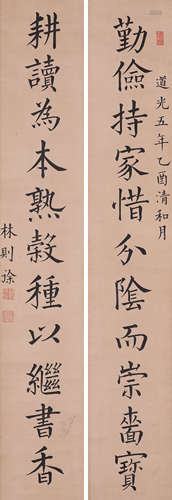 勤儉持家惜分陰而崇嗇寶
道光五年乙酉清和月
耕讀為本熟穀種以繼書香
林則徐